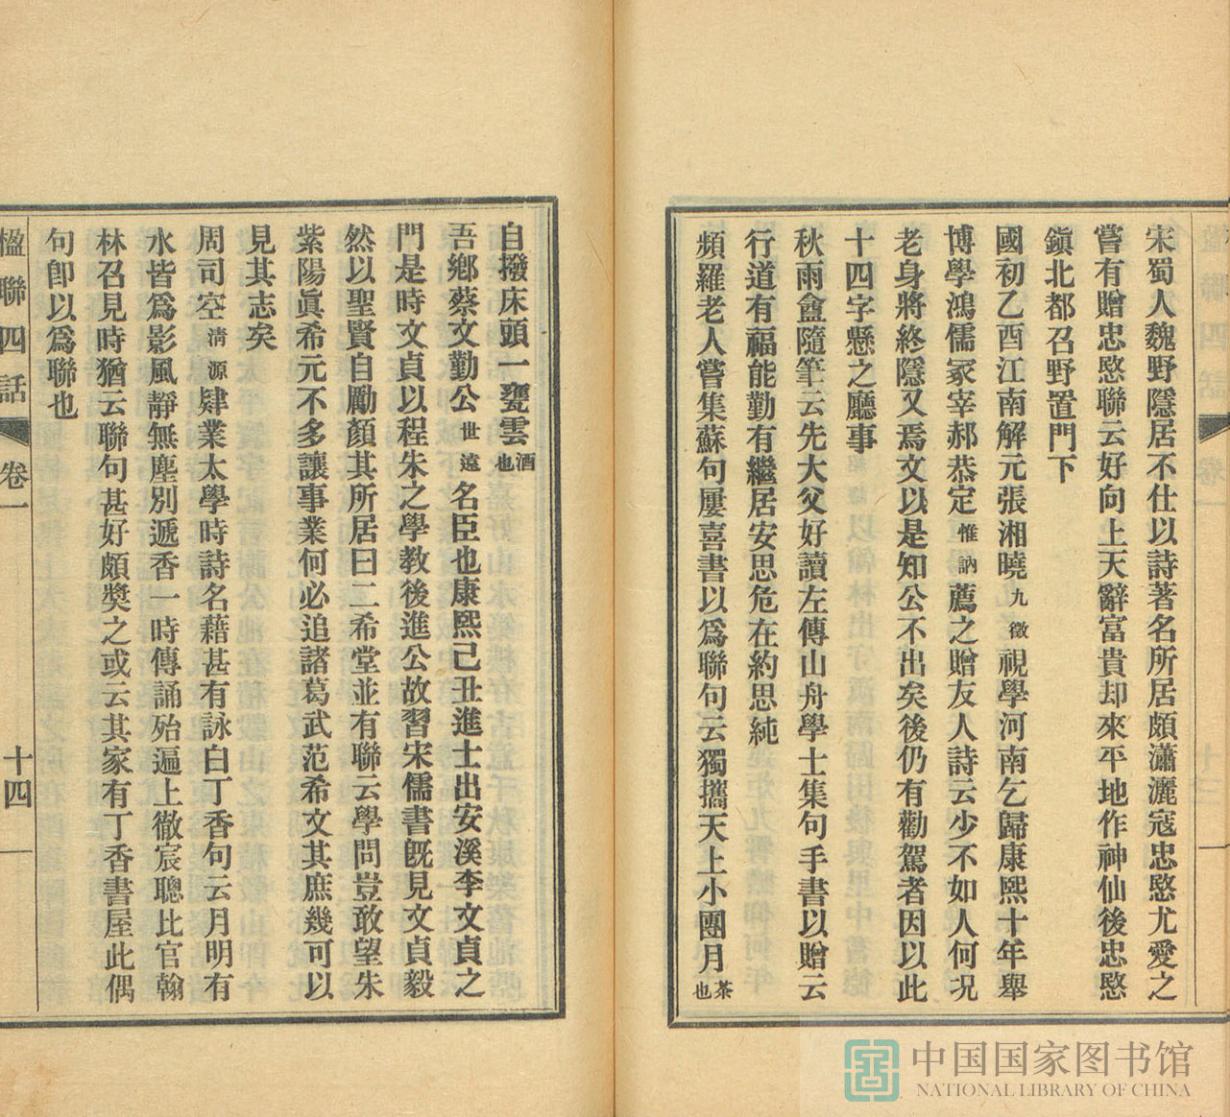 宋蜀人魏野隱居不仕以詩著名所居頗瀟灑寇忠愍尤愛之
嘗有贈忠愍聯云好向上天辭富貴却來平地作神仙後忠愍
鎭北都召野置門下
國初乙酉江南解元張湘曉九徵視學河南乞歸康熙十年舉
博學鴻儒冢宰郝恭定惟訥薦之贈友人詩云少不如人何况
老身將終隱又焉文以是知公不出矣後仍有勸駕者因以此
十四字懸之廳事
秋雨盦隨筆云先大父好讀左傳山舟學士集句手書以贈云
行道有福能勤有繼居安思危在約思純
頻羅老人嘗集蘇句屢喜書以爲聯句云獨攜天上小團月茶也
自撥床頭一甕雲酒也
吾鄕蔡文勤公世遠名臣也康熙己丑進士出安溪李文貞之
門是時文貞以程朱之學教後進公故習宋儒書旣見文貞毅
然以聖賢自勵顏其所居曰二希堂並有聯云學問豈敢望朱
紫陽眞希元不多讓事業何必追諸葛武范希文其庶幾可以
見其志矣
周司空淸源肄業太學時詩名藉甚有詠白丁香句云月明有
水皆爲影風靜無塵別遞香一時傳誦殆遍上徹宸聰比官翰
林召見時猶云聯句甚好頗奬之或云其家有丁香書屋此偶
句卽以爲聯也
楹聯四話
卷一
十四
中国国家图书馆
NATIONAL LIBRARY OF CHINA